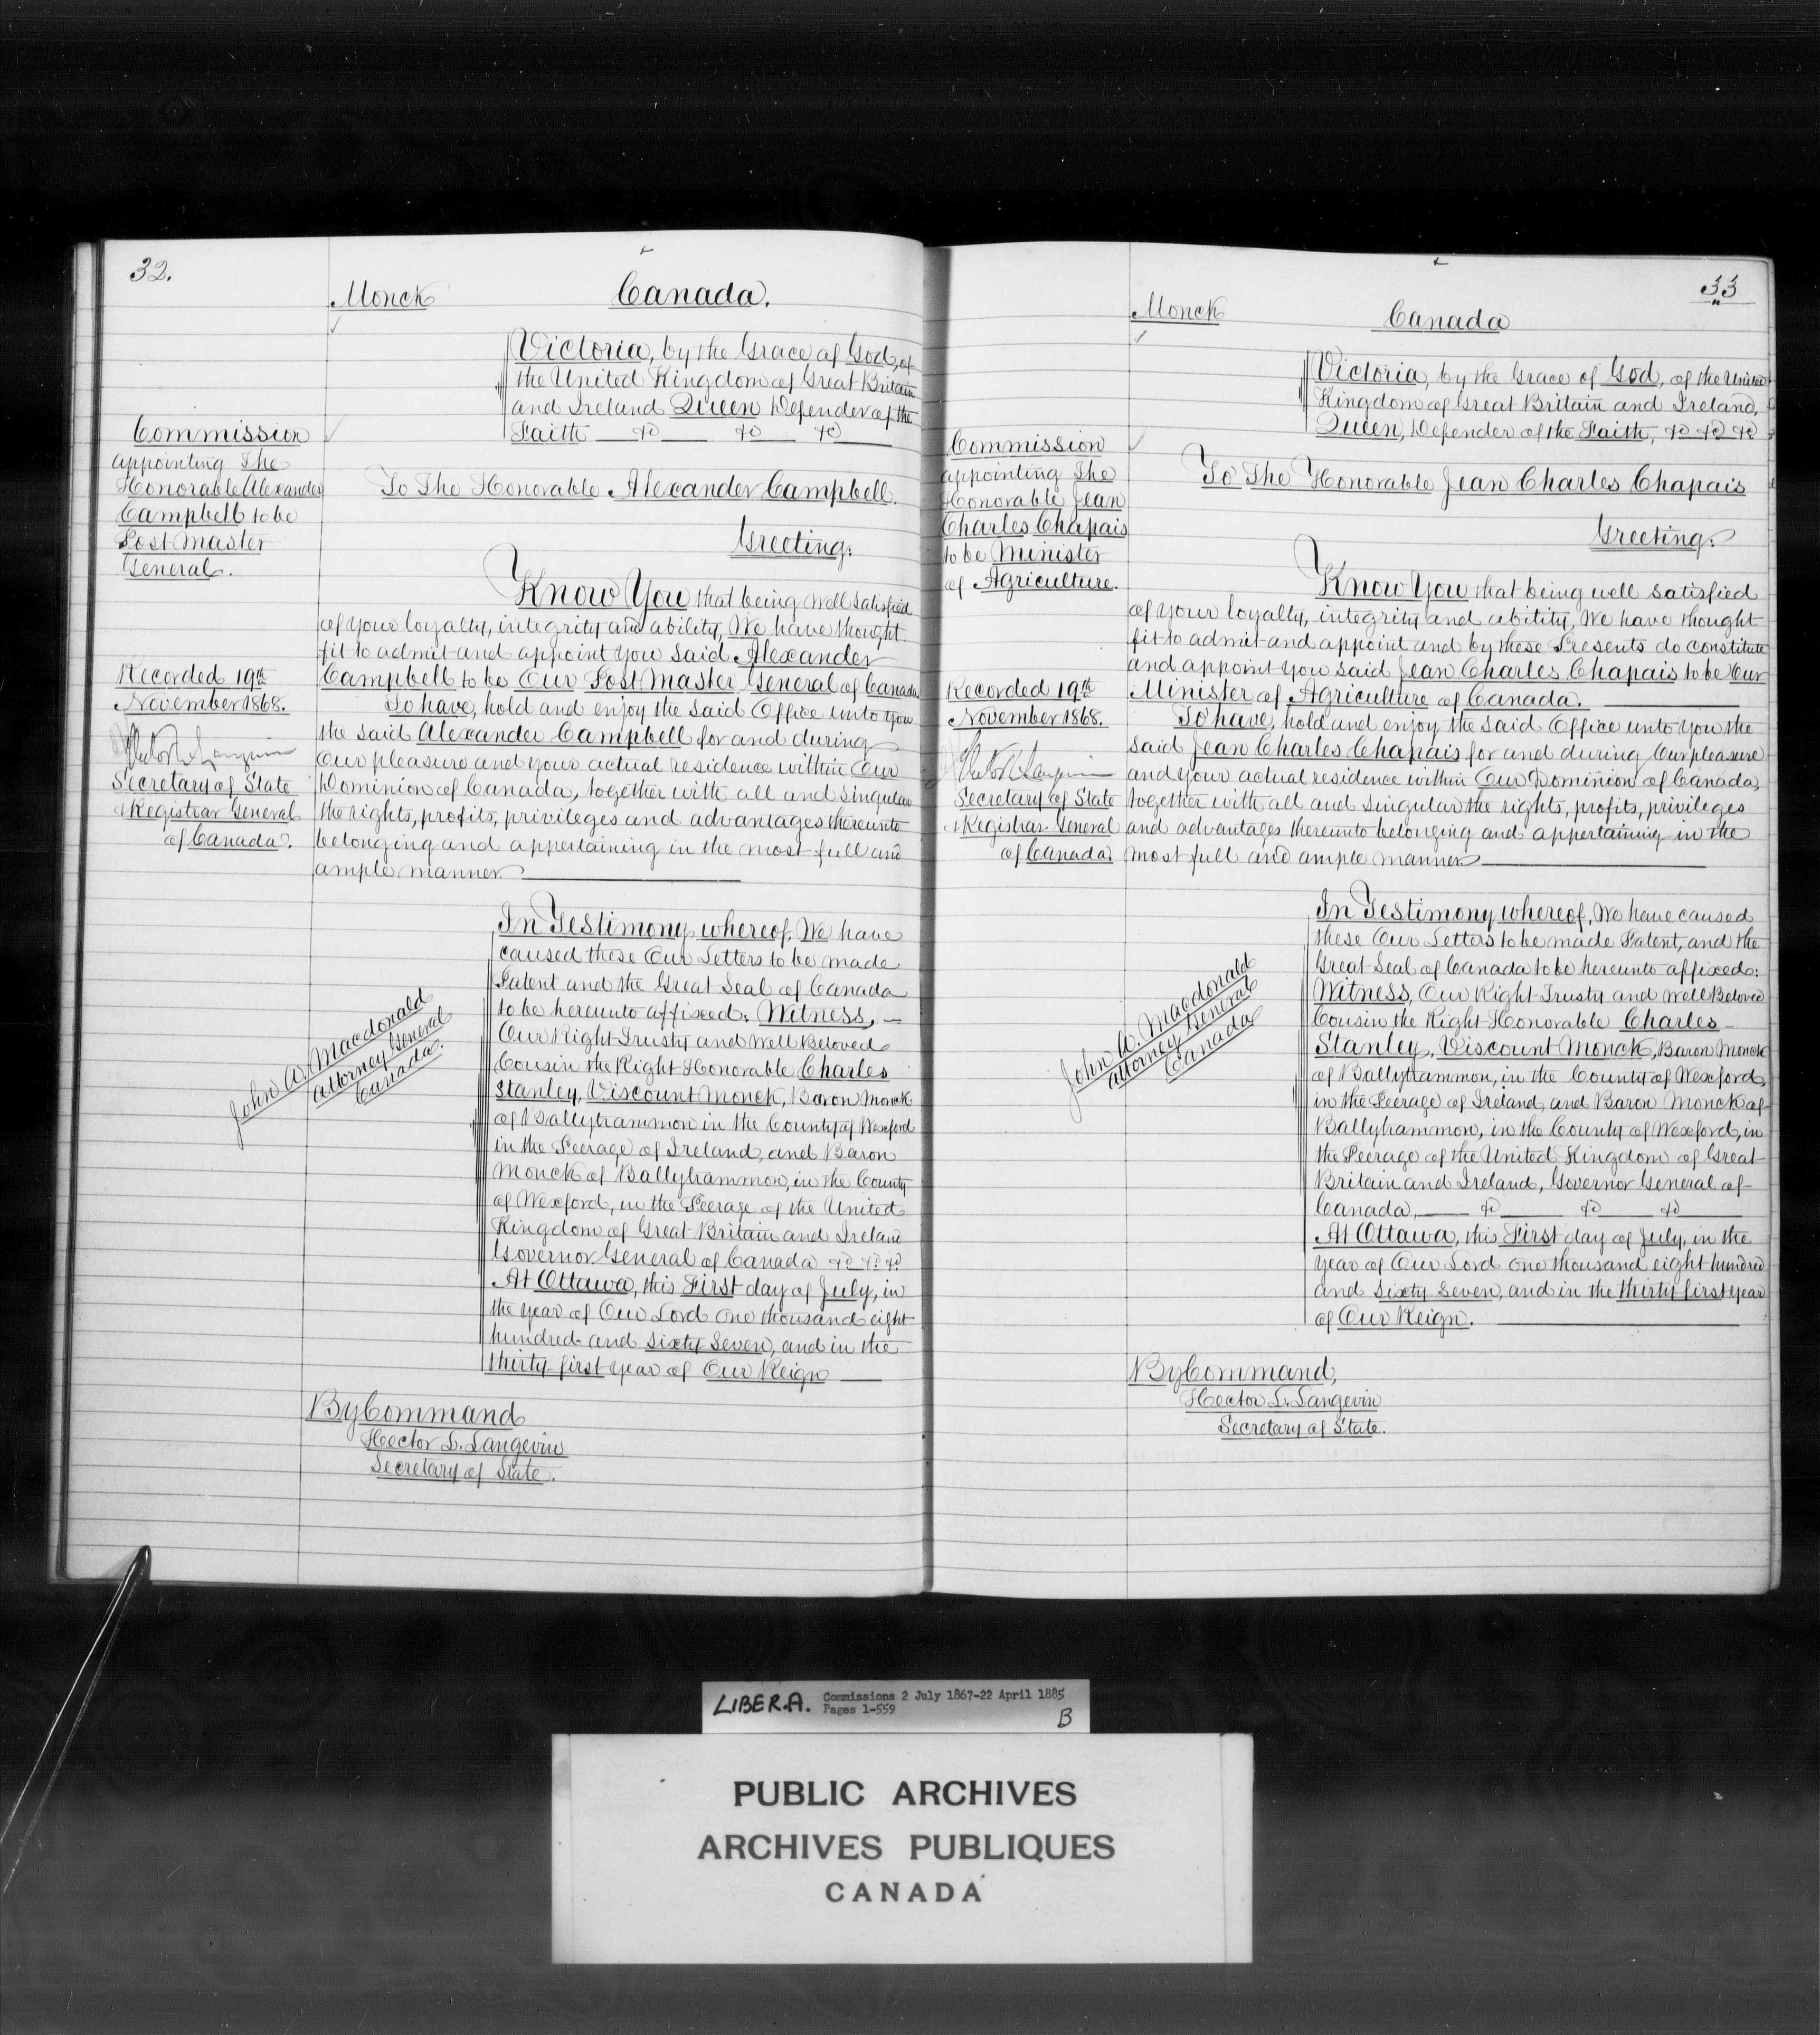 32.
Monck
Canada.
Victoria, by the Grace of God, of
the United Kingdom of Great Britain
and Ireland Queen Defender of the
Faith &c &c &c
Commission
appointing The
Honorable Alexander
Campbell to be
Post Master
General.
To The Honorable Alexander Campbell.
Greeting:
Know You that being well satisfied
of your loyalty, integrity and ability, We have thought
fit to admit and appoint you said Alexander
Campbell to be Our Post Master General of Canada
To have, hold and enjoy the said Office unto you
the said Alexander Campbell for and during
Our pleasure and your actual residence within Our
Dominion of Canada, together with all and singular
the rights, profits, privileges and advantages thereunto
belonging and appertaining in the most full and
ample manner
Recorded 19th
November 1868.
Hector L. Langevin
Secretary of State
& Registrar General
of Canada.
In Testimony whereof, We have
caused these Our Letters to be made
Patent and the Great Seal of Canada
to be hereunto affixed: Witness,
Our Right Trusty and Well Beloved
Cousin the Right Honorable Charles
Stanley, Viscount Monck, Baron Monck
of Ballytrammon in the County of Wexford
in the Peerage of Ireland, and Baron
Monck of Ballytrammon, in the County
of Wexford, in the Peerage of the United
Kingdom of Great Britain and Ireland
Governor General of Canada &c &c &c
At Ottawa, this First day of July, in
the year of Our Lord one thousand eight
hundred and Sixty Seven, and in the
thirty-first year of Our Reign
John A. Macdonald
Attorney General
Canada.
By Command
Hector L. Langevin
Secretary of State.
33
Monck
Canada
Victoria, by the Grace of God, of the United
Kingdom of Great Britain and Ireland,
Queen, Defender of the Faith, &c &c &c
Commission
appointing The
Honorable Jean
Charles Chapais
to be Minister
of Agriculture.
To The Honorable Jean Charles Chapais
Greeting:
Know You that being well satisfied
of your loyalty, integrity and ability, We have thought
fit to admit and appoint and by these Presents do constitute
and appoint you said Jean Charles Chapais to be Our
Minister of Agriculture of Canada.
To have, hold and enjoy the said Office unto you the
said Jean Charles Chapais for and during Our pleasure
and your actual residence within Our Dominion of Canada,
together with all and singular the rights, profits, privileges
and advantages thereunto belonging and appertaining in the
most full and ample manner
Recorded 19th
November 1868.
Hector L. Langevin
Secretary of State
& Registrar General
of Canada.
In Testimony whereof, We have caused
these Our Letters to be made Patent, and the
Great Seal of Canada to be hereunto affixed:
Witness, Our Right Trusty and Well Beloved
Cousin the Right Honorable Charles
Stanley, Viscount Monck, Baron Monck
of Ballytrammon, in the County of Wexford,
in the Peerage of Ireland, and Baron Monck of
Ballytrammon, in the County of Wexford, in
the Peerage of the United Kingdom of Great
Britain and Ireland, Governor General of
Canada, &c &c &c
At Ottawa, this First day of July, in the
year of Our Lord one thousand eight hundred
and Sixty Seven, and in the thirty-first year
of Our Reign.
John A. Macdonald
Attorney General
Canada
By Command,
Hector L. Langevin
Secretary of State.
LIBER.A. Commissions 2 July 1867-22 April 1885
Pages 1-559
B
PUBLIC ARCHIVES
ARCHIVES PUBLIQUES
CANADA